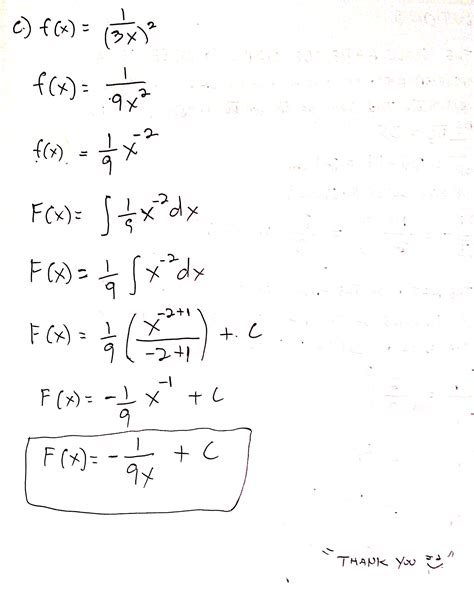 c.) f(x) = 1/(3x)²
f(x) = 1/9x²
f(x) = 1/9 x⁻²
F(x) = ∫ 1/9 x⁻² dx
F(x) = 1/9 ∫ x⁻² dx
F(x) = 1/9 (x⁻²⁺¹/-2+1) + C
F(x) = -1/9 x⁻¹ + C
F(x) = -1/9x + C
"THANK YOU =)"